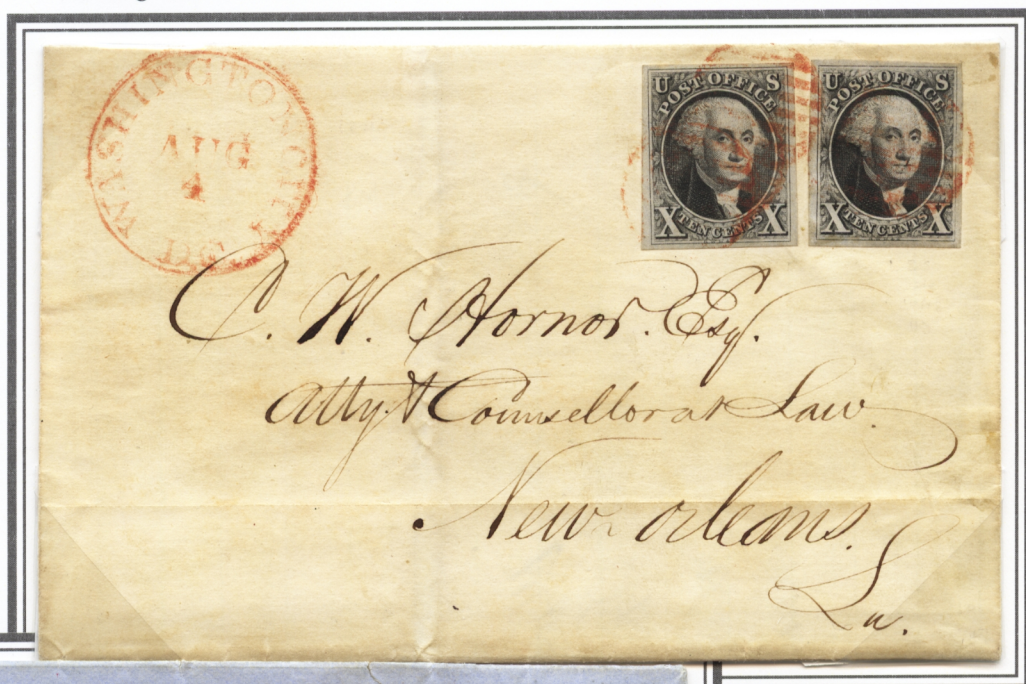 WASHINGTON CITY
AUG
4
D.C.
U S
POST OFFICE
X TEN CENTS X
U S
POST OFFICE
X TEN CENTS X
C. W. Hornor. Esq.
Atty & Counsellor at Law.
New Orleans.
La.